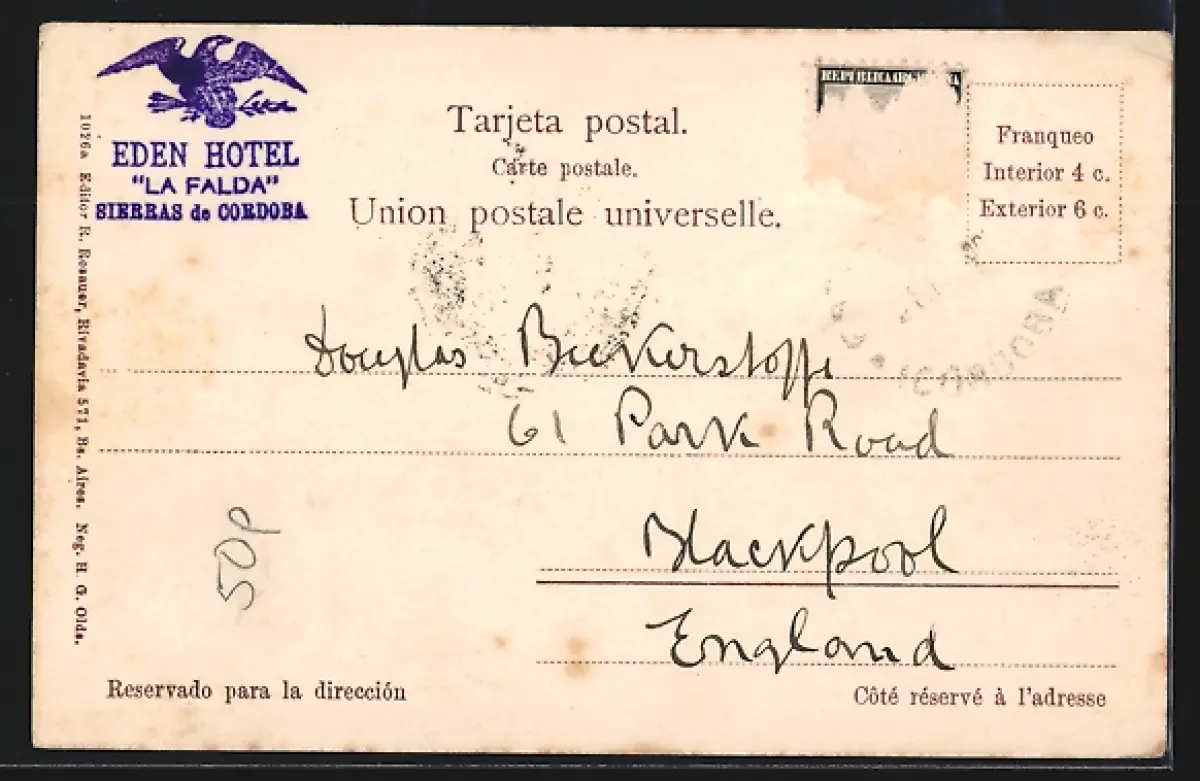 EDEN HOTEL
"LA FALDA"
SIERRAS de CORDOBA
Tarjeta postal.
Carte postale.
Union postale universelle.
REPUBLICA
Franqueo
Interior 4 c.
Exterior 6 c.
CORDOBA
Douglas Bickerstaffe
61 Park Road
Blackpool
England
50p
Reservado para la dirección
Côté réservé à l'adresse
1026a Editor R. Rosauer, Rivadavia 571, Bs. Aires. Neg. H. G. Olds.